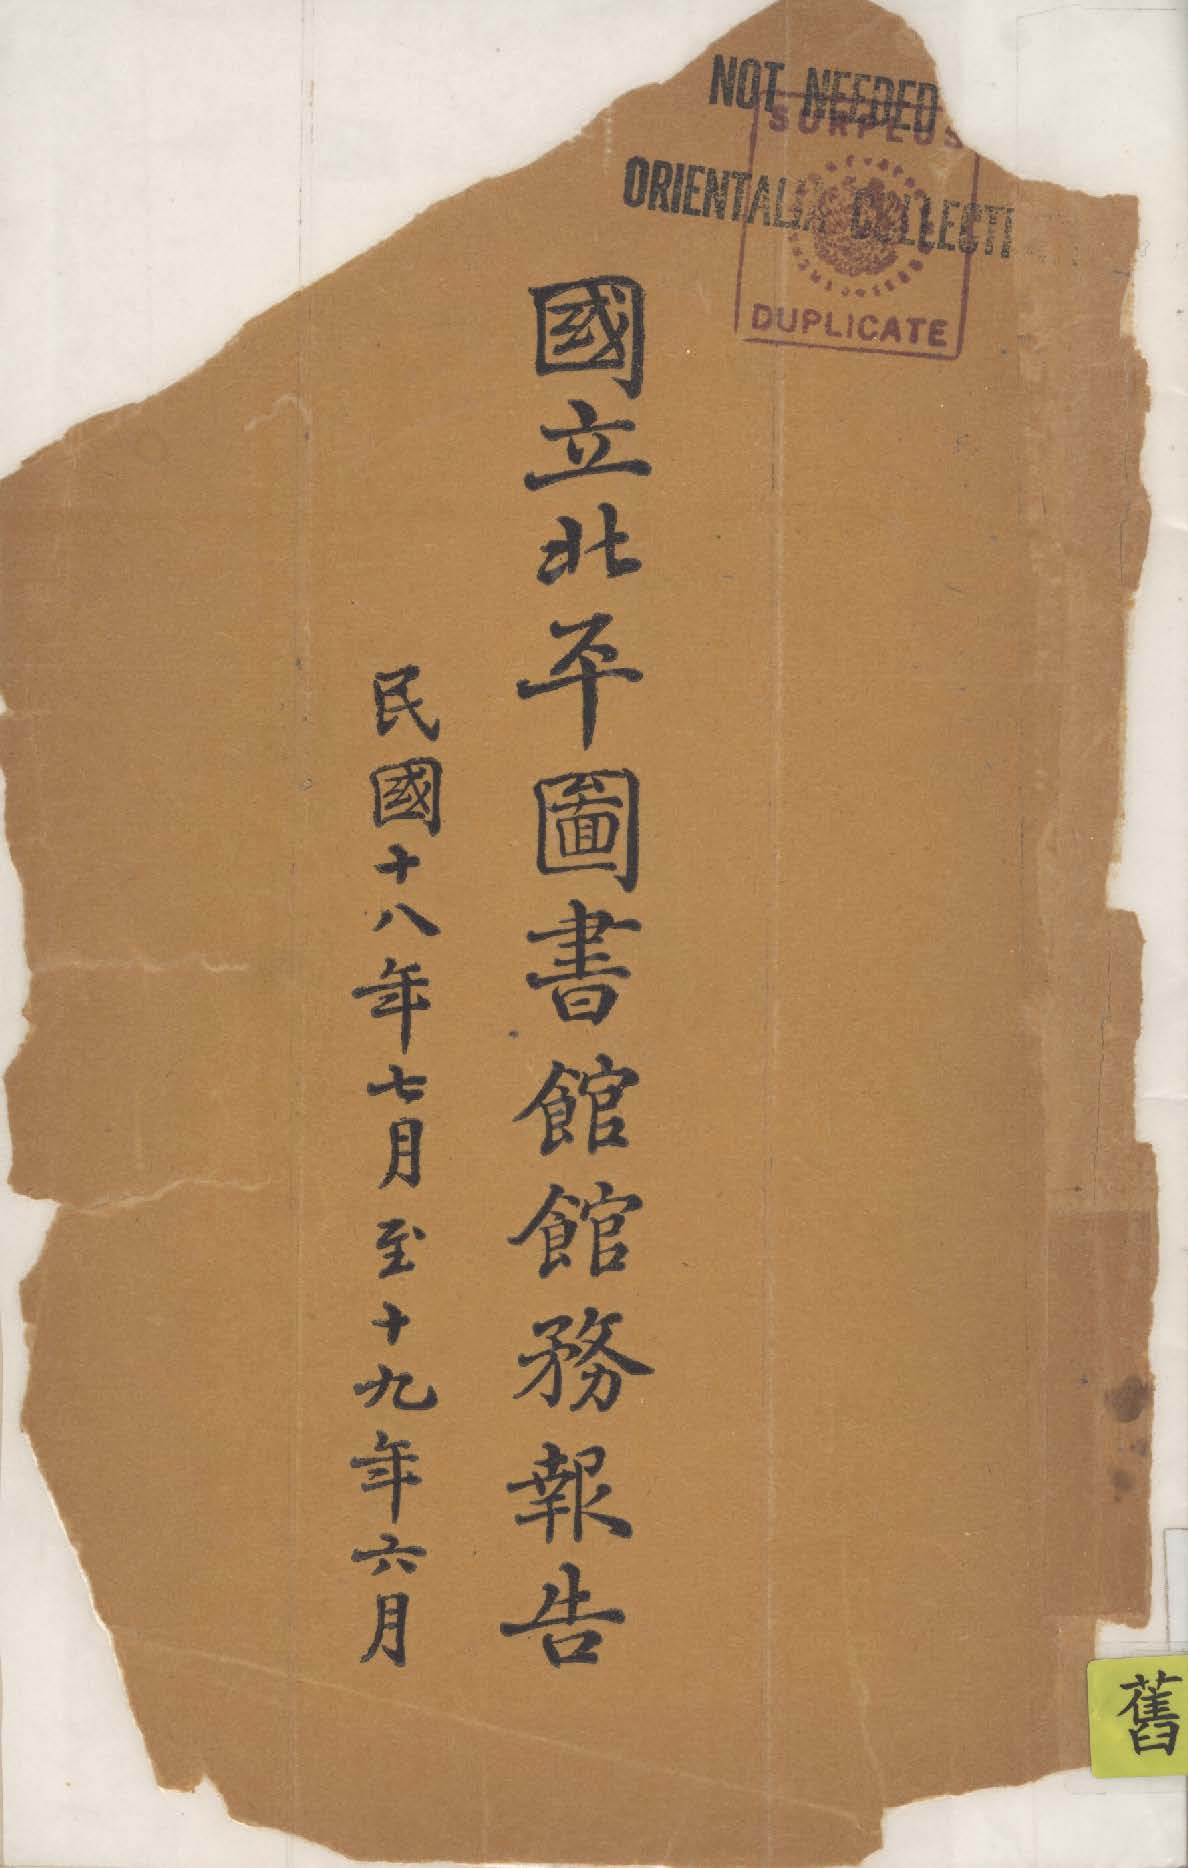 NOT NEEDED
ORIENTALIA COLLECTI
SURPLUS
DUPLICATE
國立北平圖書館館務報告
民國十八年七月至十九年六月
舊